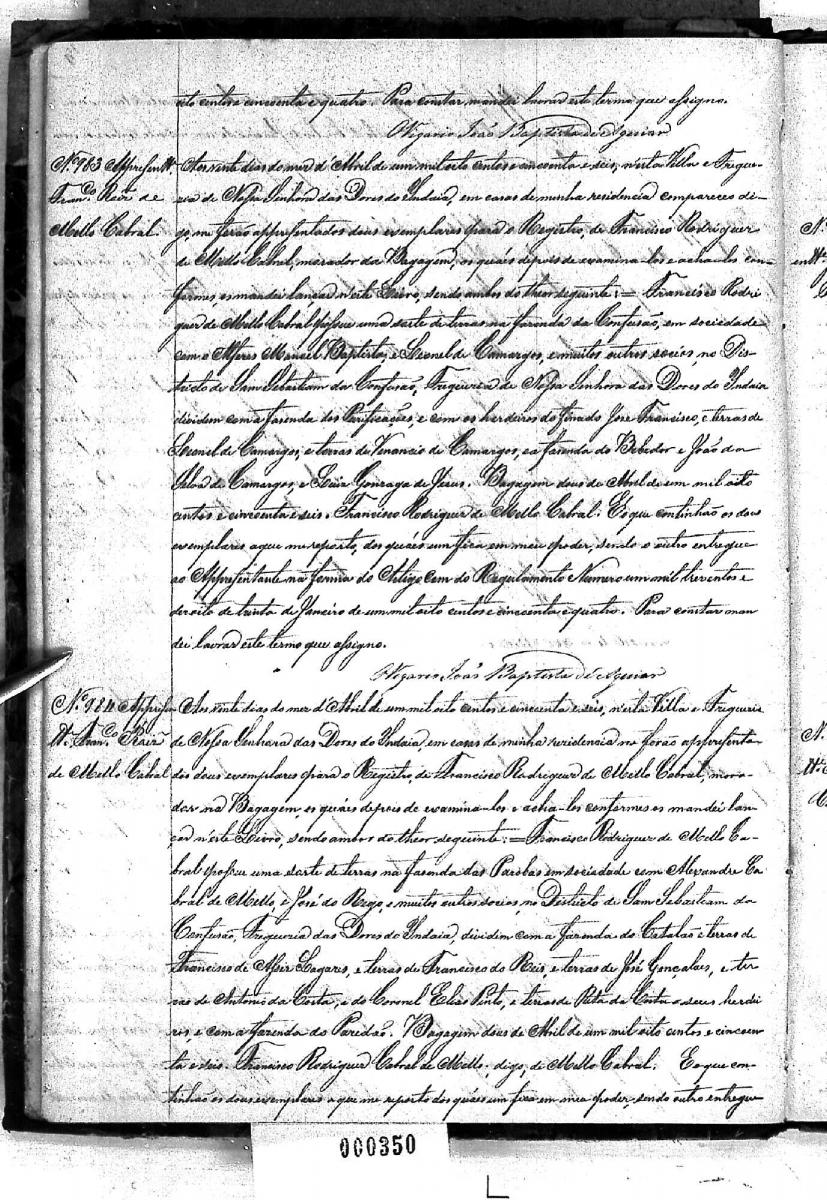 oito centos e cincoenta e quatro. Para constar mandei lavrar este termo que assigno.
O Vigario João Baptista de Aguiar
Nº 983 Appresent.
Fran.co Roiz de
Mello Cabral.
Aos vinte dias do mez d'Abril de um mil oito centos e cincoenta e seis, n'esta Villa e Fregue-
zia de Nossa Senhora das Dores do Indaia, em casas de minha residencia compareceo di-
go, me forão appresentados dous exemplares para o Registro, de Francisco Rodrigues
de Mello Cabral, morador da Bagagem, os quáes depois de examina-los e acha-los con-
formes os mandei lançar n'este Livro, sendo ambos do theor seguinte: = Francisco Rodri
gues de Mello Cabral possue uma sorte de terras na fazenda da Confusão, em sociedade
com o Alferes Manoel Baptista, e Leonel de Camargos, e muitos outros socios, no Dis-
tricto de Sam Sebastiam da Confusão, Freguezia de Nossa Senhora das Dores do Indaia
dividem com a fazenda dos Purificações, e com os herdeiros do finado José Francisco, e terras de
Leonel de Camargos, e terras de Venancio de Camargos, e a fazenda do Bebedor e João da
Silva de Camargos, e Luis Gonzaga de Jesus. Bagagem dous de Abril de um mil oito
centos e cincoenta e seis. Francisco Rodrigues de Mello Cabral. E o que continhão os dous
exemplares a que me reporto, dos quáes um fica em meu poder, sendo o outro entregue
ao Appresentante na forma do Artigo cem do Regulamento Numero um mil trezentos e
dezoito de trinta de Janeiro de um mil oito centos e cincoenta e quatro. Para constar man
dei lavrar este termo que assigno.
O Vigario João Baptista de Aguiar
Nº 984 Appresen
te. Fran.co Roiz
de Mello Cabral
Aos vinte dias do mez d'Abril de um mil oito centos e cincoenta e seis, n'esta Villa e Freguezia
de Nossa Senhora das Dores do Indaia, em casas de minha residencia me forão appresenta-
dos dous exemplares para o Registro, de Francisco Rodrigues de Mello Cabral, mora-
dor na Bagagem, os quáes depois de examina-los e acha-los conformes os mandei lan-
çar n'este Livro, sendo ambos do theor seguinte: = Francisco Rodrigues de Mello Ca-
bral possue uma sorte de terras na fasenda das Parobas em sociedade com Alexandre Ca
bral de Mello, e José do Rego, e muitos outros socios, no Districto de Sam Sebastiam da
Confusão, Freguezia das Dores do Indaia, dividem com a fazenda do Catalão e terras de
Francisco de Assis Lagares, e terras de Francisco do Reis, e terras de José Gonçalves, e ter-
ras de Antonio da Costa, e do Coronel Elias Pinto, e terras de Rita da Costa e seus herdei
ros, e com a fazenda do Paredão. Bagagem dous de Abril de um mil oito centos e cincoen
ta e seis. Francisco Rodrigues Cabral de Mello, digo, de Mello Cabral. E o que con-
tinhão os dous exemplares a que me reporto dos quáes um fica em meu poder, sendo outro entregue
Nº
Nº
000350